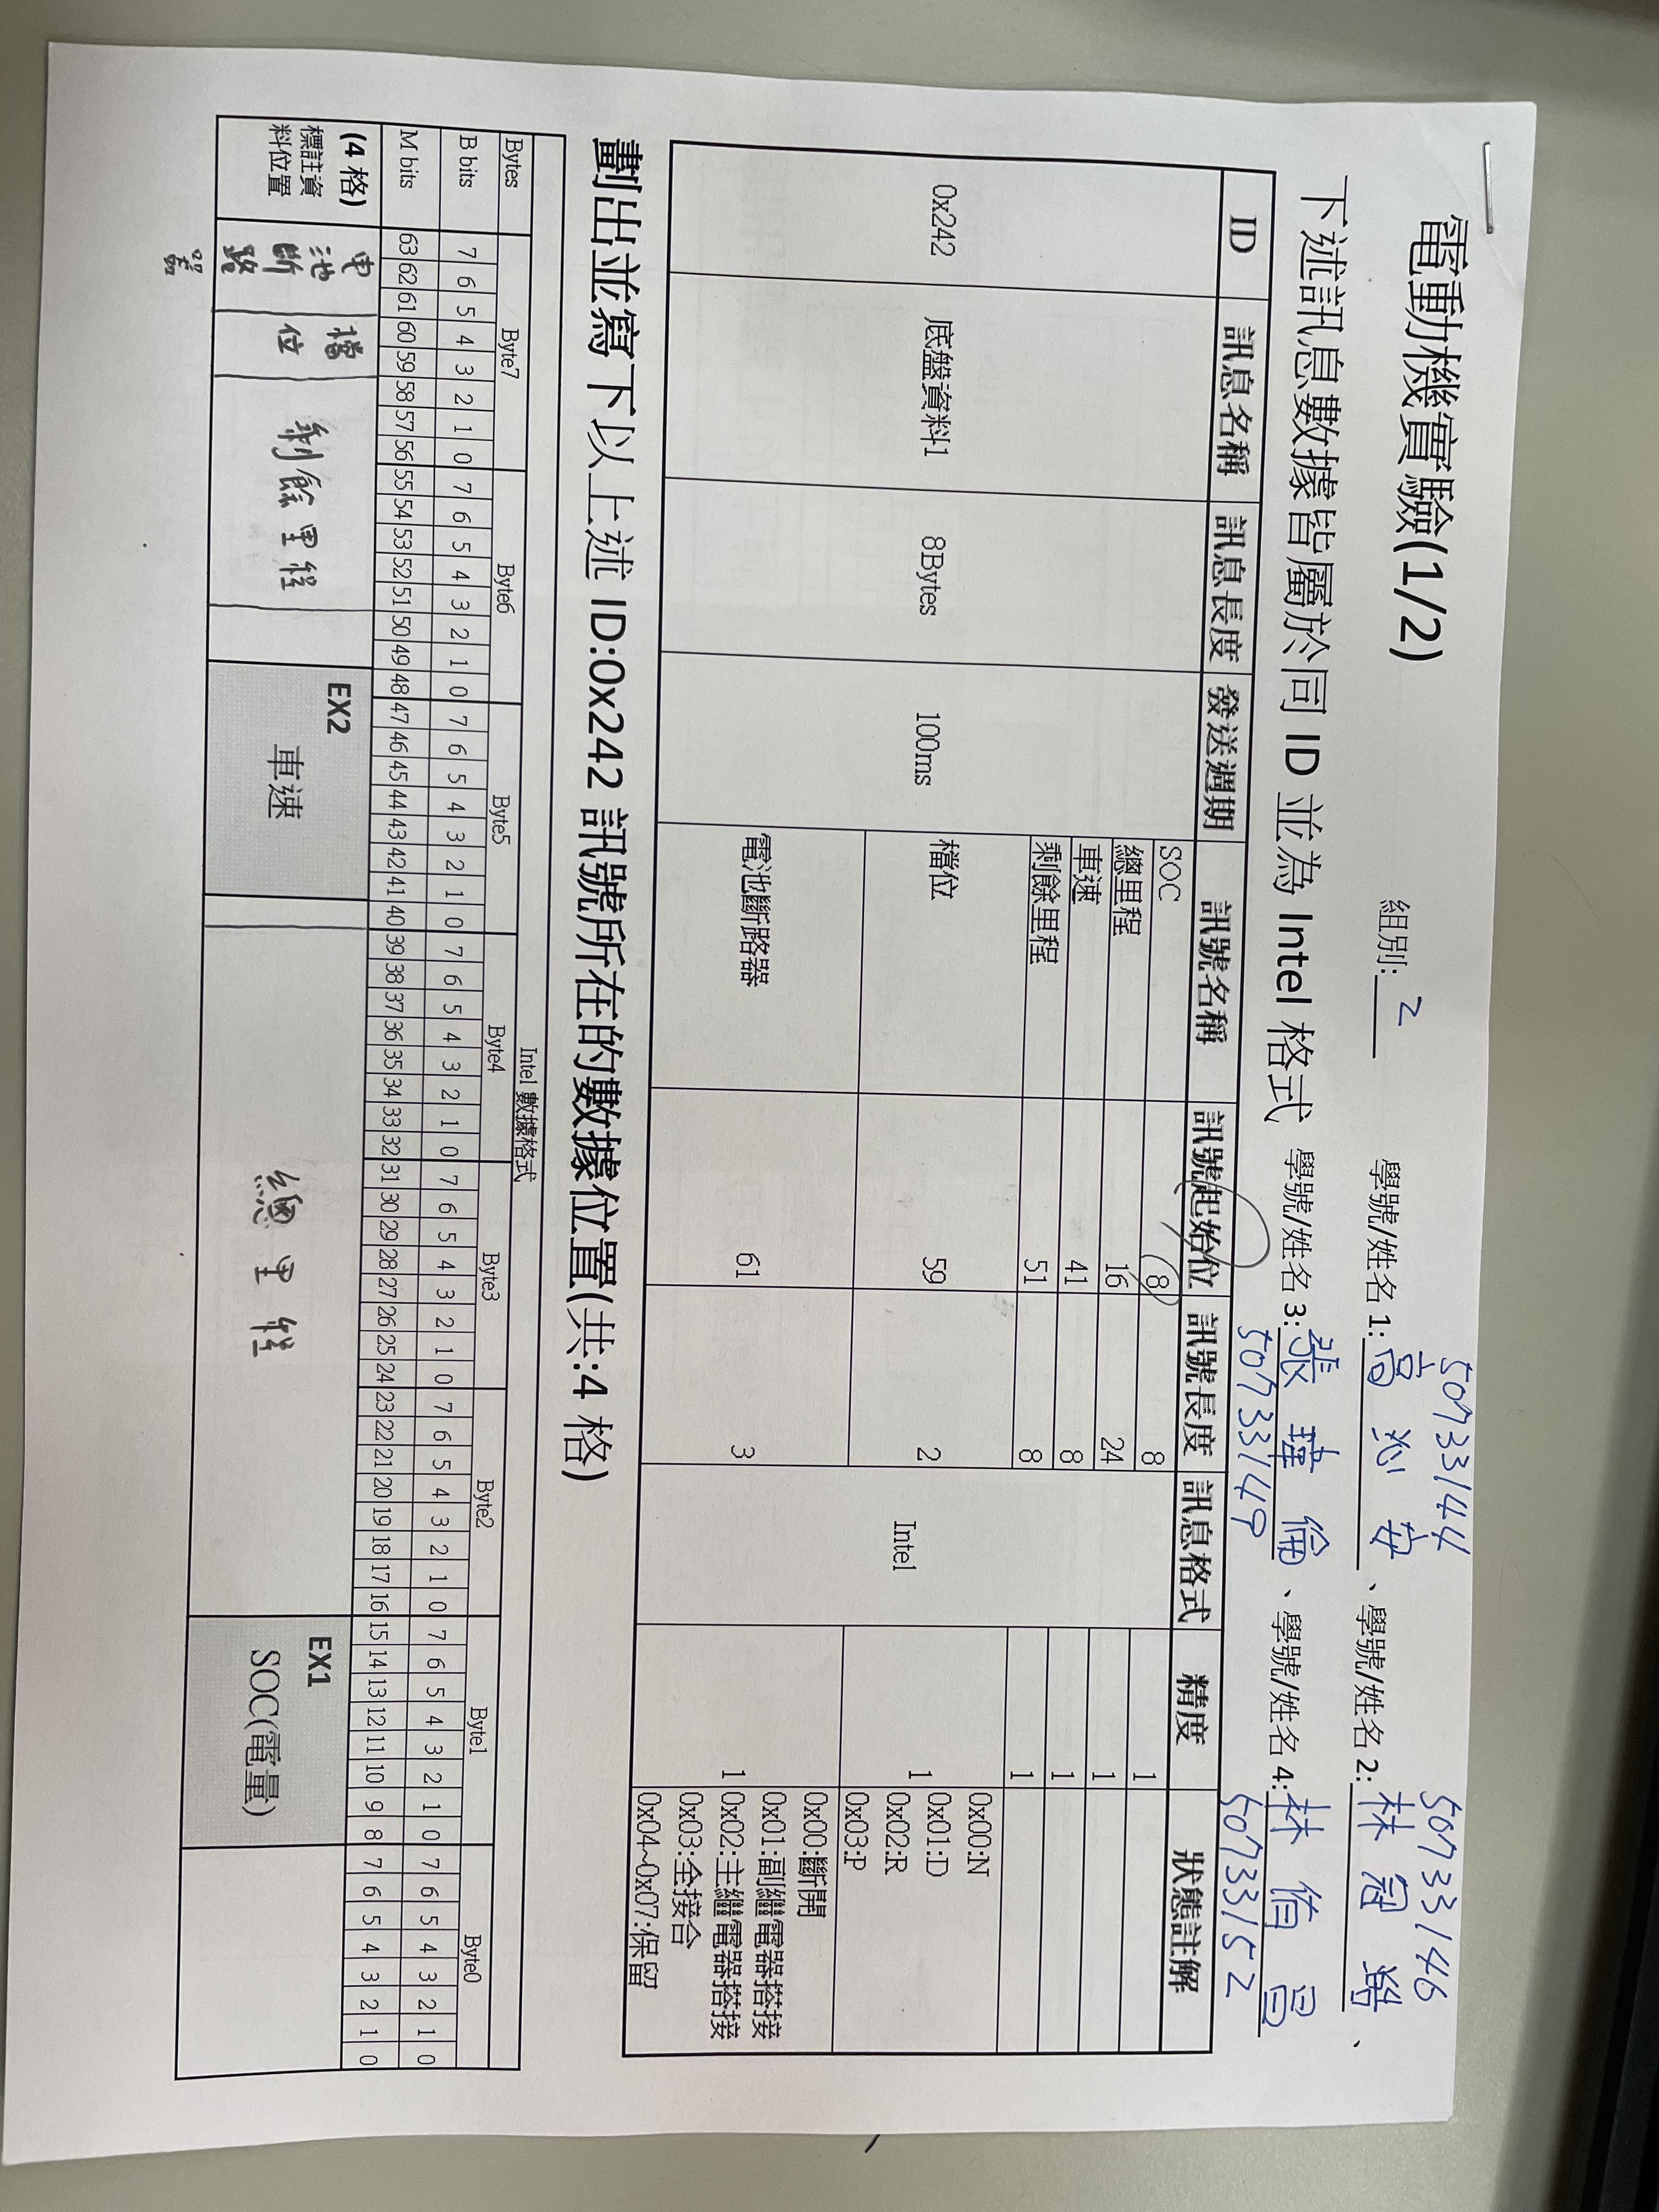 電動機實驗(1/2)
組別: 2
50733144 50733146
學號/姓名 1: 高 沁 安 、學號/姓名 2: 林 冠 、
下述訊息數據皆屬於同 ID 並為 Intel 格式 學號/姓名 3: 張 瑋 倫 、學號/姓名 4: 林
50733149 50733152
ID 訊息名稱 訊息長度 發送週期 訊號名稱 訊號起始位 訊號長度 訊息格式 精度 狀態註解
0x242 底盤資料1 8Bytes 100ms Intel
SOC 8 8 1
總里程 16 24 1
車速 41 8 1
剩餘里程 51 8 1
檔位 59 2 1
0x00:N
0x01:D
0x02:R
0x03:P
電池斷路器 61 3 1
0x00:斷開
0x01:副繼電器搭接
0x02:主繼電器搭接
0x03:全接合
0x04~0x07:保留
劃出並寫下以上述 ID:0x242 訊號所在的數據位置(共:4 格)
Intel 數據格式
Bytes Byte7 Byte6 Byte5 Byte4 Byte3 Byte2 Byte1 Byte0
B bits 7 6 5 4 3 2 1 0 7 6 5 4 3 2 1 0 7 6 5 4 3 2 1 0 7 6 5 4 3 2 1 0 7 6 5 4 3 2 1 0 7 6 5 4 3 2 1 0 7 6 5 4 3 2 1 0 7 6 5 4 3 2 1 0
M bits 63 62 61 60 59 58 57 56 55 54 53 52 51 50 49 48 47 46 45 44 43 42 41 40 39 38 37 36 35 34 33 32 31 30 29 28 27 26 25 24 23 22 21 20 19 18 17 16 15 14 13 12 11 10 9 8 7 6 5 4 3 2 1 0
(4 格)
標註資
料位置
電
池
斷
路
器
檔
位
剩餘里程
EX2
車速
總里程
EX1
SOC(電量)